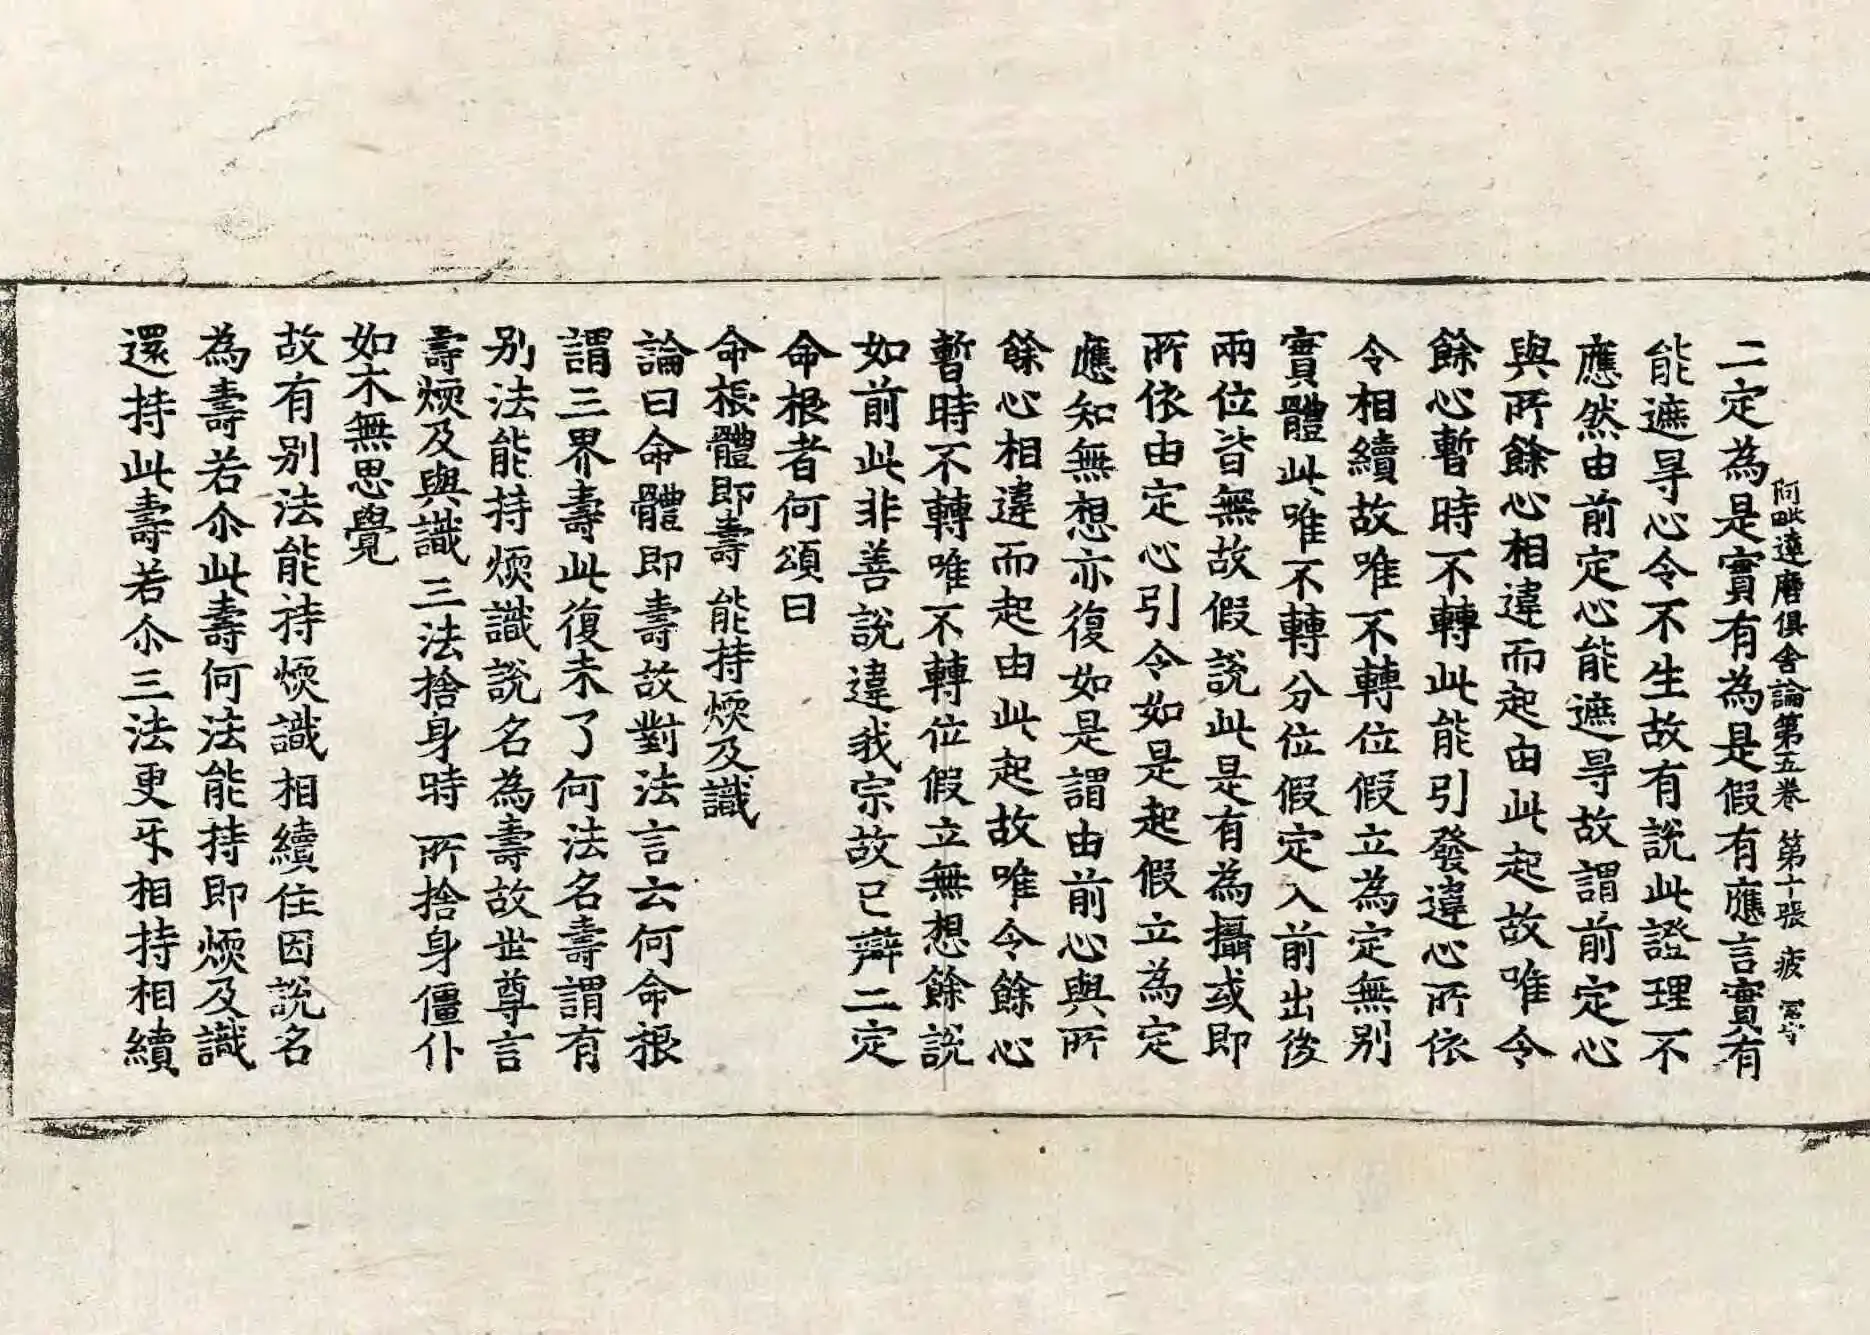 阿毗達磨俱舍論第五卷 第十張 疲
二定為是實有為是假有應言實有
能遮㝵心令不生故有說此證理不
應然由前定心能遮㝵故謂前定心
與所餘心相違而起由此起故唯令
餘心暫時不轉此能引發違心所依
令相續故唯不轉位假立為定無別
實體此唯不轉分位假定入前出後
兩位皆無故假說此是有為攝或即
所依由定心引令如是起假立為定
應知無想亦復如是謂由前心與所
餘心相違而起由此起故唯令餘心
暫時不轉唯不轉位假立無想餘說
如前此非善說違我宗故已辯二定
命根者何頌曰
命根體即壽 能持煗及識
論曰命體即壽故對法言云何命根
謂三界壽此復未了何法名壽謂有
別法能持煗識說名為壽故世尊言
壽煗及與識 三法捨身時 所捨身僵仆
如木無思覺
故有別法能持煗識相續住因說名
為壽若尒此壽何法能持即煗及識
還持此壽若尒三法更㸦相持相續